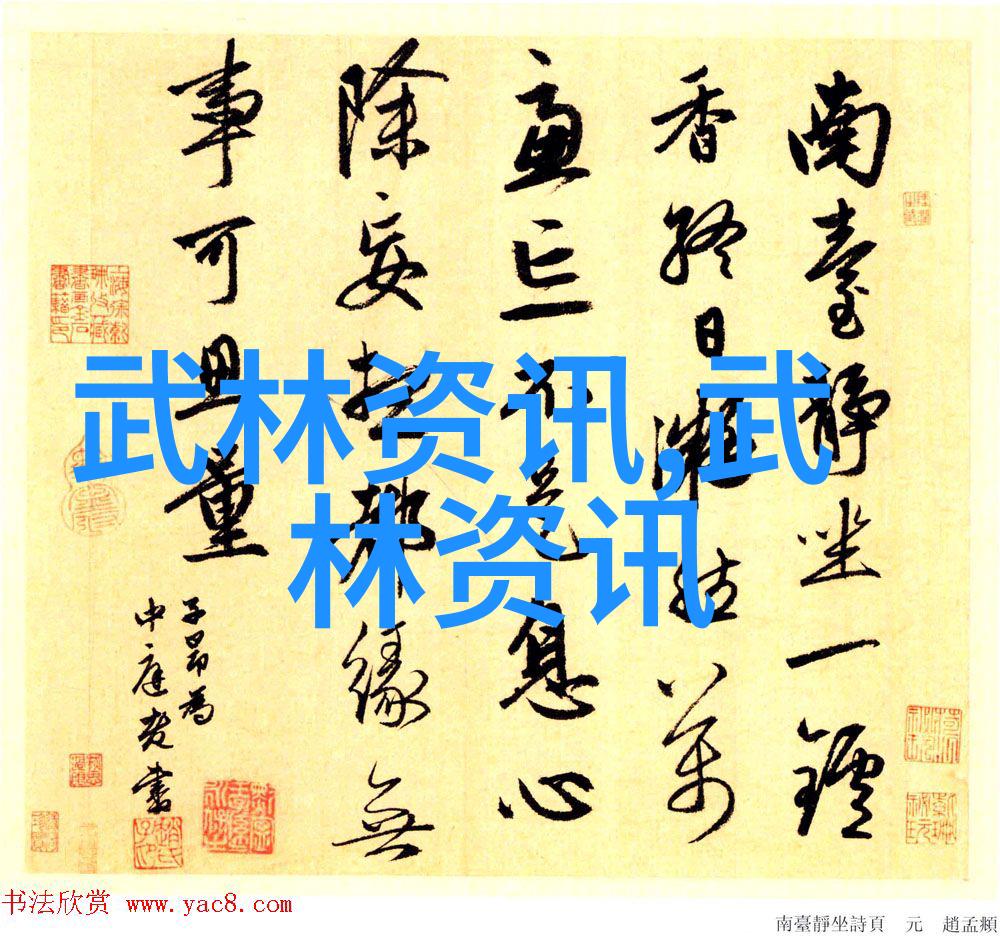 南臺靜坐一鑪
香終日凝然萬
慮亡不是息心
除妄想都緣無
事可思量
子昂為
中庭老書
武林资讯,武
林资讯
书法欣赏 www.yac8.com
南臺靜坐詩頁　元　趙孟頫